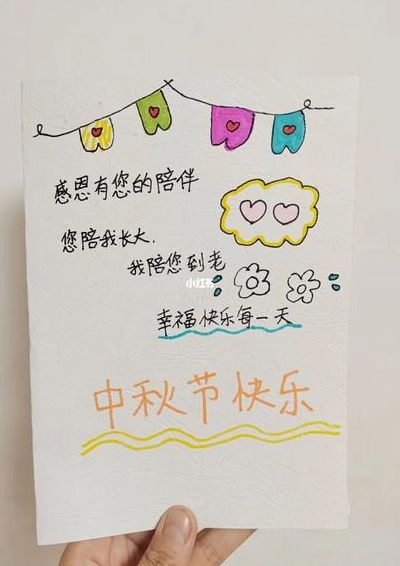 感恩有您的陪伴
您陪我长大.
我陪您到老
小红书
幸福快乐每一天
中秋节快乐